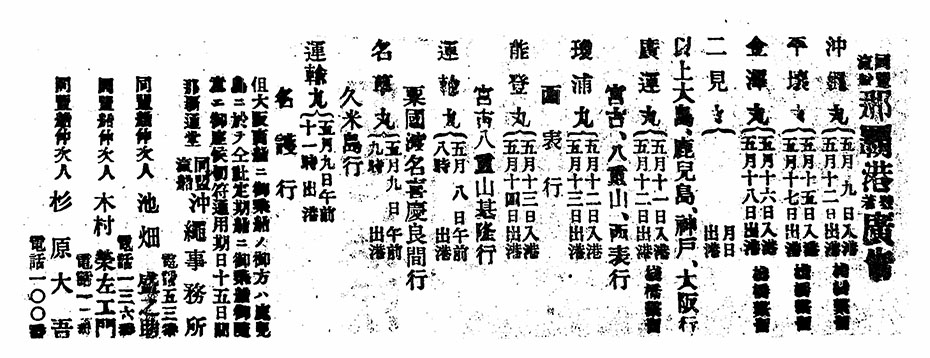 同盟汽船那覇港發着廣告
沖繩丸 五月九日入港 五月十二日出港 棧橋繋留
平壤丸 五月十五日入港 五月十七日出港 棧橋繋留
金澤丸 五月十六日入港 五月十八日出港 棧橋繋留
二見丸 月日出港
以上大島、鹿兒島、神戸、大阪行
廣運丸 五月十一日入港 五月十二日出港 棧橋繋留
宮古、八重山、西表行
瓊浦丸 五月十二日入港 五月十三日出港
西表行
能登丸 五月十四日出港
宮古八重山基隆行
運輸丸 五月八日午前八時出港
粟國渡名喜慶良間行
名護丸 五月九日午前九時出港
久米島行
運輸丸 五月九日午前十一時出港
名護行
但大阪商船ニ御乘船ノ御方ハ鹿兒
島ニ於テ仝社定期船ニ御乘船御隨
意ニ御座候切符通用期日十五日間
那覇通堂 同盟汽船沖繩事務所
電話五三番
同盟船仲次人 池畑盛之助
電話一三六番
同盟船仲次人 木村榮左工門
電話一一二番
同盟船仲次人 杉原大吾
電話一〇〇番